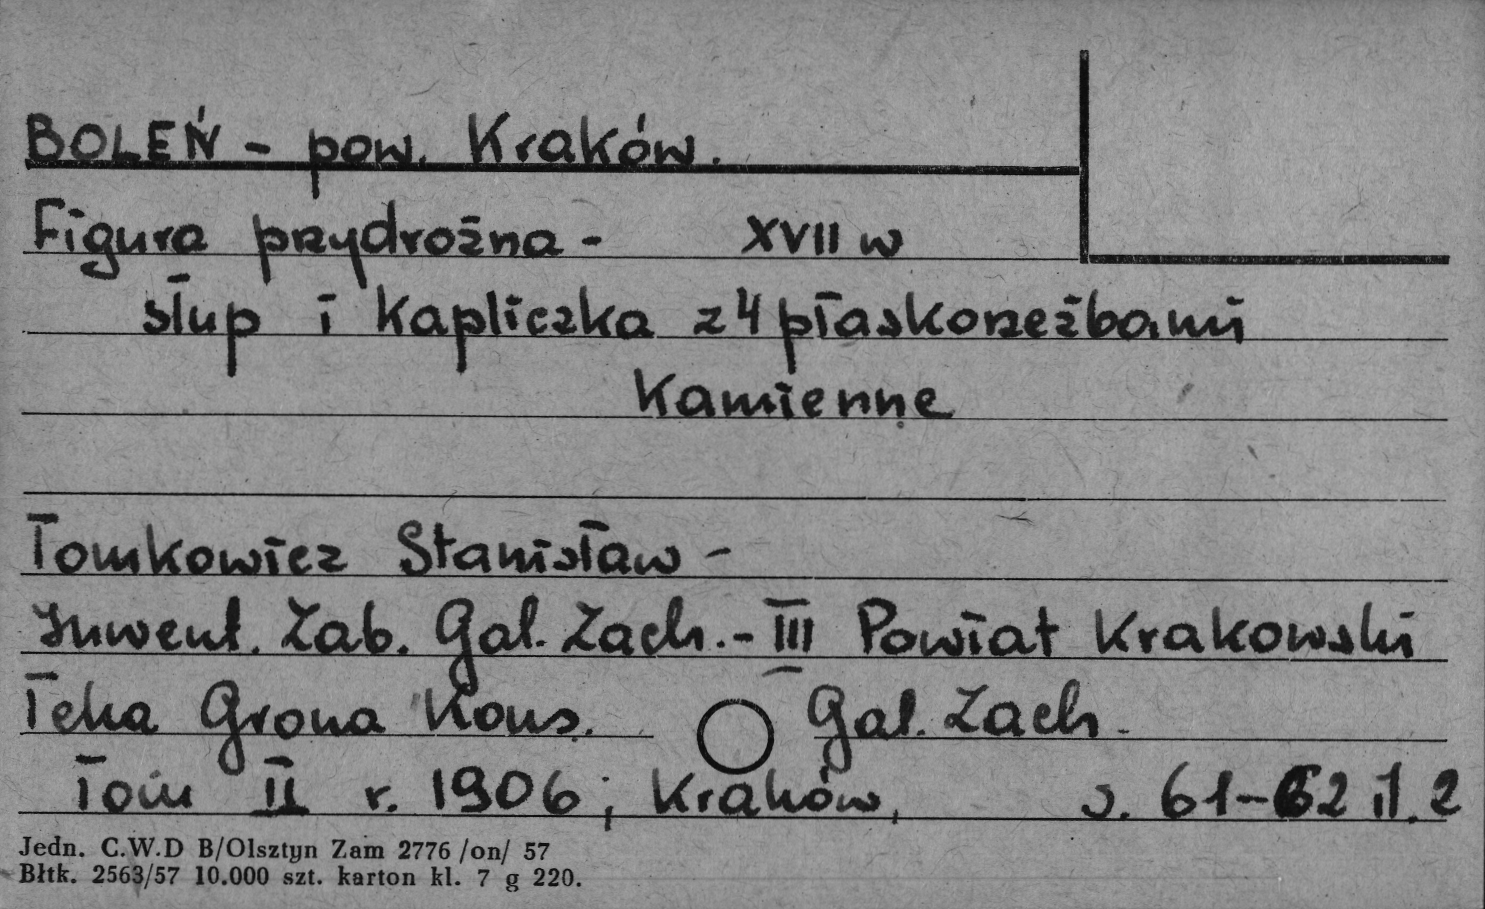 BOLEŃ - pow. Kraków.
Figura przydrożna - XVII w
słup i kapliczka z 4 płaskorzeźbami
Kamienne
Tomkowicz Stanisław -
Inwent. Zab. Gal. Zach. - III Powiat Krakowski
Teka Grona Kons. Gal. Zach.
Tom II r. 1906; Kraków, s. 61-62 il. 2
Jedn. C.W.D B/Olsztyn Zam 2776 /on/ 57
Błtk. 2563/57 10.000 szt. karton kl. 7 g 220.